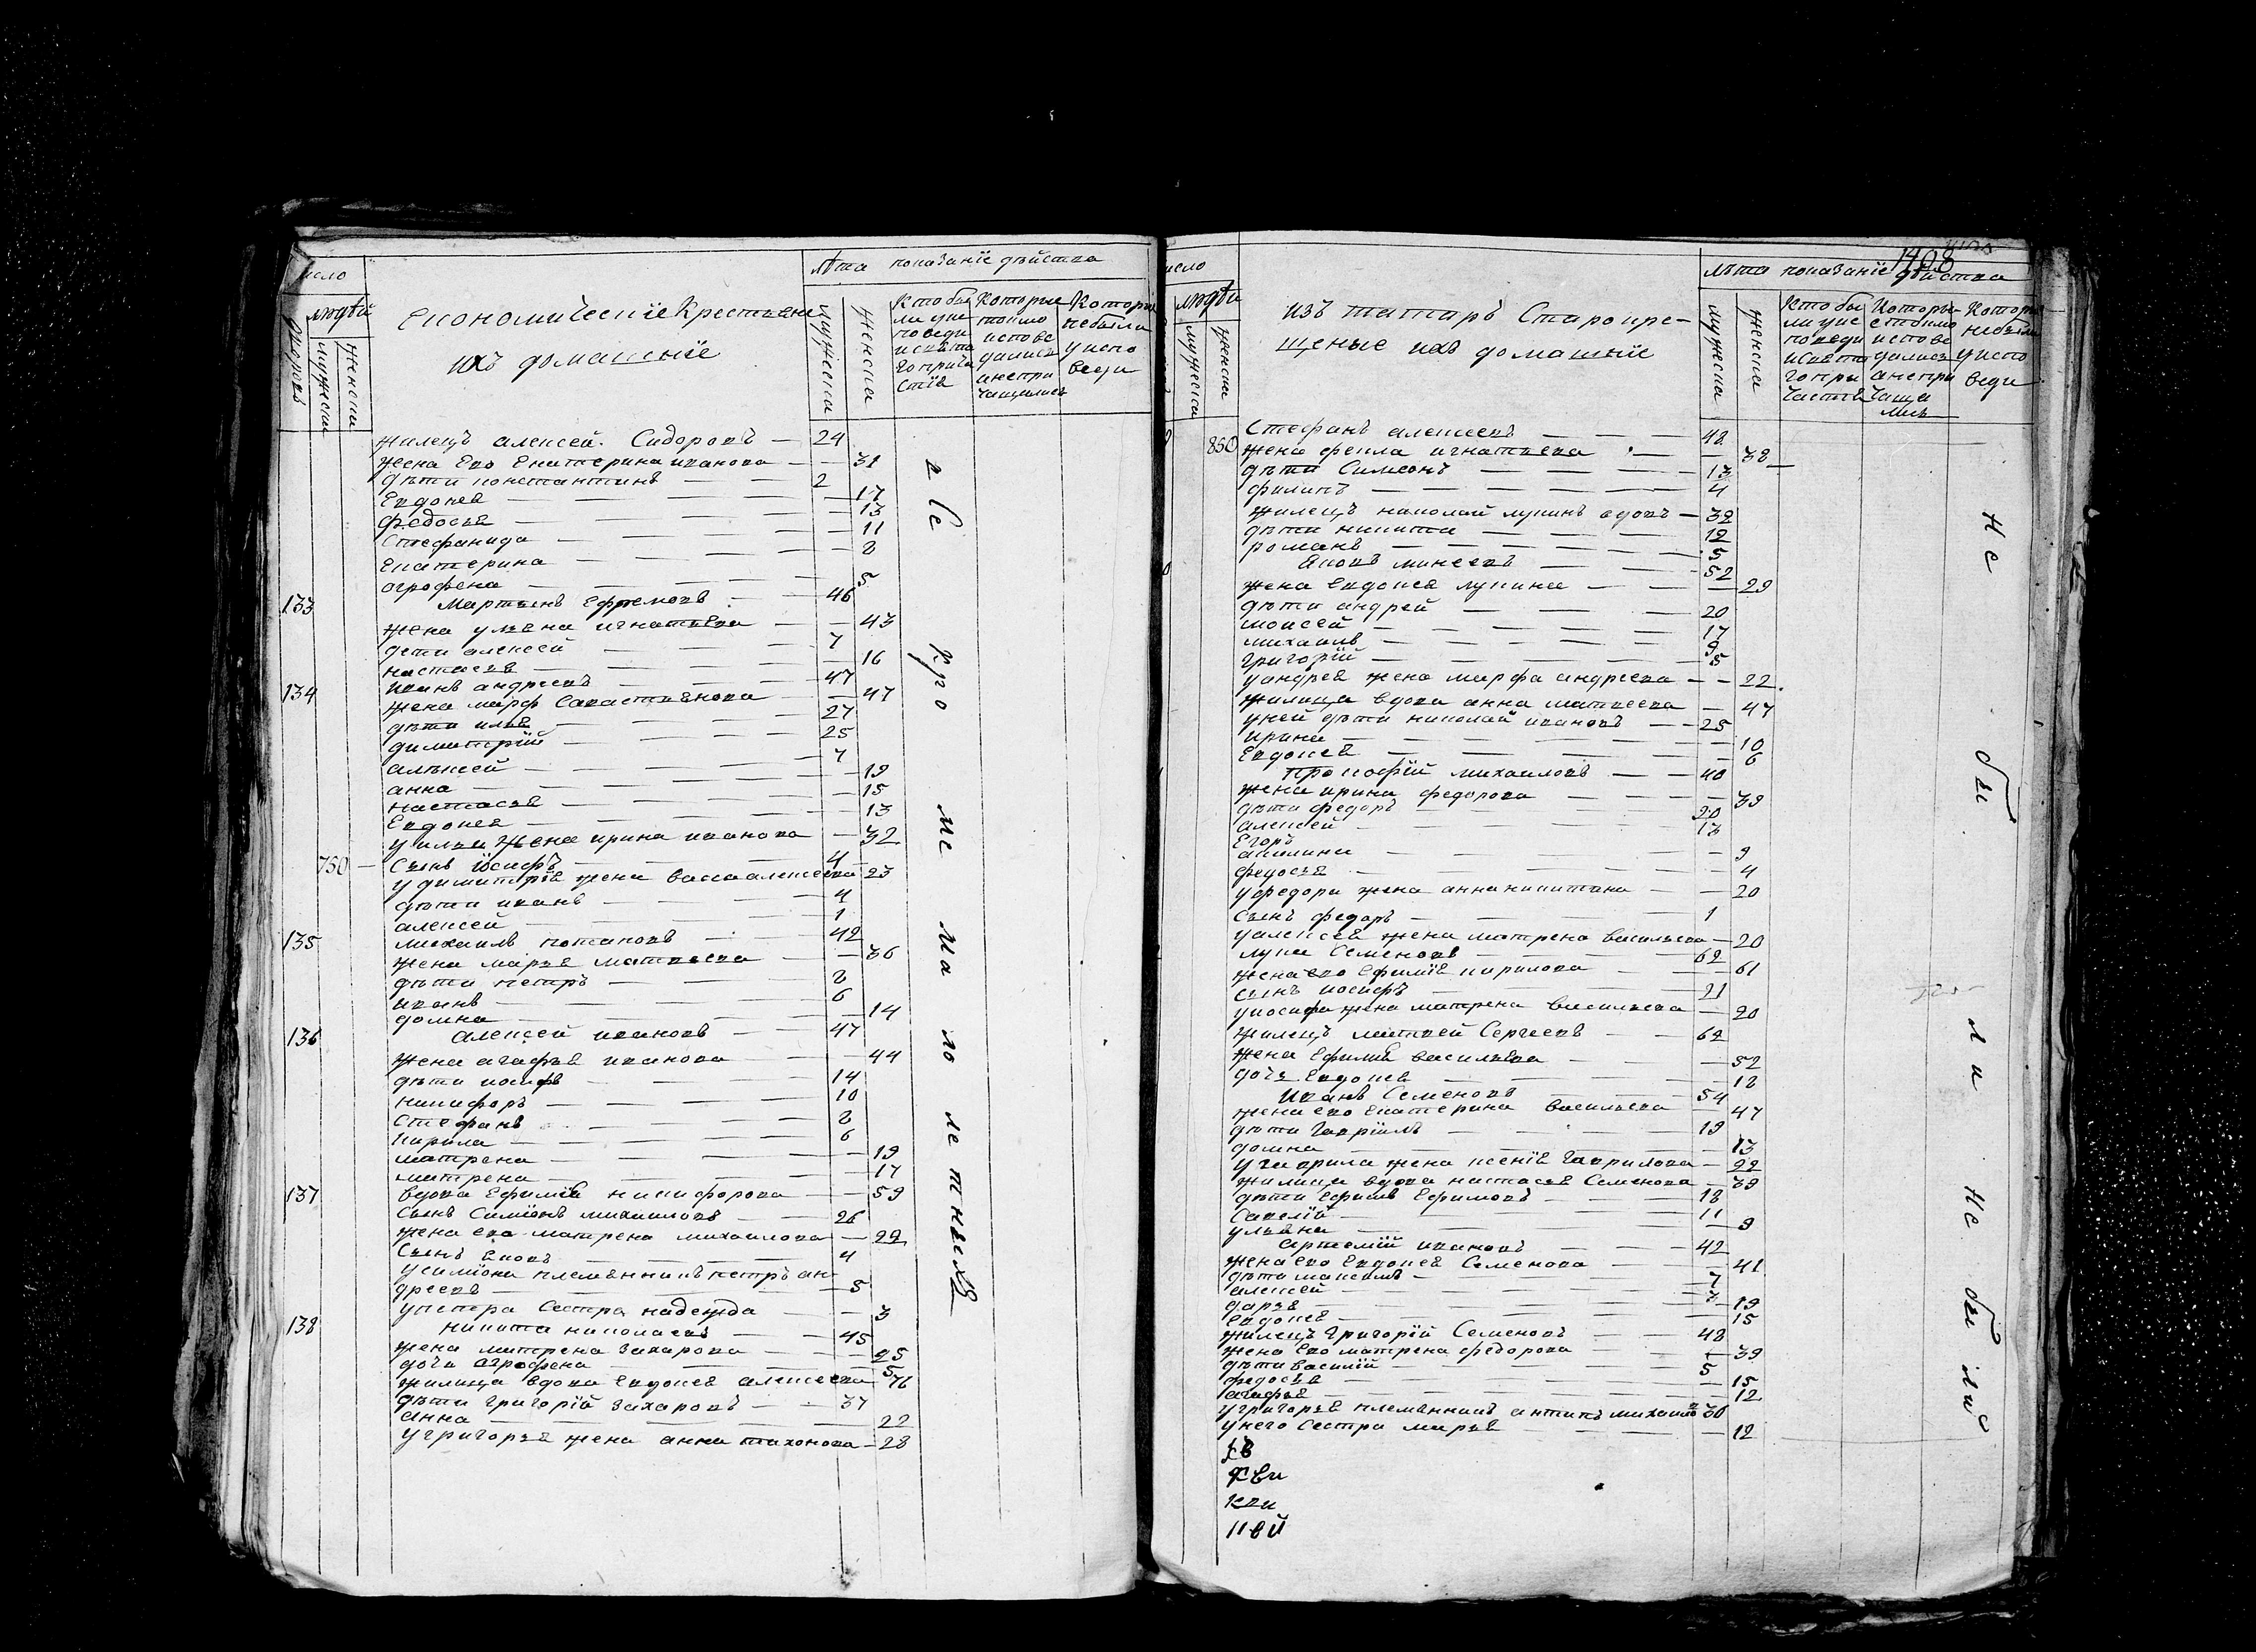 число
людей
дворовъ
мужеска
женска
Економическïе Крестьяне
ихъ домашнïе
лѣта показанïе дѣйства
мужеска
женска
Кто бы
ли у испо
веди
и свята
го прича
стïя
Которые
токмо
испове
дались
а непри
чащались
Которые
небыли
у испо
веди
жилецъ алексей Сидоровъ — 24
жена Его Екатерина иванова — — 31
дѣти константинъ — — 2
Евдокея — — 17
федосья — — 13
Стефанида — — 11
Екатерина — — 8
агрофена — — 5
133 Мартынъ Ефремовъ — 46
жена ульяна игнатьева — — 43
дети алексей — 7
настасья — — 16
134 иванъ андреевъ — 47
жена марф Савастьянова — 47
дѣти илья — 27
димитрïй — 25
алѣксей — 7
анна — — 19
настасья — — 15
Евдокея — — 13
у ильи жена ирина иванова — 32
750 — Сынъ ïосифъ — 4
у димитрïя жена васса алексеева 23
дѣти иванъ — 4
алексей — 1
135 михаилъ потаповъ — 42
жена марья матвеева — — 36
дѣти петръ — 8
иванъ — 6
домна — — 14
136 алексей ивановъ — 47
жена агафья иванова — — 44
дѣти иосифъ — 14
никифоръ — 10
Стефанъ — 8
кирила — 6
матрена — — 19
матрена — — 17
137 вдова Ефимïя никифорова — — 59
Сынъ Симïонъ михаиловъ — 26
жена его матрена михаилова — 22
Сынъ яковъ — 4
у симïона племянникъ петръ ан-
дреевъ — 5
у петра Сестра надежда — — 3
138 никита николаевъ — 45
жена матрена захарова — — 25
дочь агрофена — — 5
жилица вдова Евдокея алексеева 76
дѣти григорïй захаровъ — 37
анна — 22
у григорья жена анна тихонова — 28
все
про
ме
ма
ло
летныхъ
1408
число
людей
мужеска
женска
изъ татаръ Старокре-
щеные ихъ домашнïе
лѣта показанïе дѣйства
мужеска
женска
Кто бы
ли у испо
веди
и свята
го при
частïя
Которы
е токмо
испове
дались
а непри
чаща
лись
Которы
небыли
у испо
веди
Стефанъ алексеевъ — 48
850 жена фекла игнатьева — — 38
дѣти Симеонъ — 13
филипъ — 4
жилецъ николай лукинъ вдовъ — 32
дѣти никита — 12
романъ — 5
яковъ минеевъ — 52
жена Евдокея лукина — — 29
дѣти андрей — 20
моисей — 17
михаилъ — 9
григорïй — 5
у андрея жена марфа андреева — — 22
жилица вдова анна матвеева — 47
у ней дѣти николай ивановъ — 25
ирина — — 10
Евдокея — — 6
прокофïй михаиловъ — 40
жена ирина федорова — 39
дѣти федоръ — 20
алексей — 17
Егоръ
акилина — 9
федосья — — 4
у федора жена анна никитина — — 20
Сынъ федоръ — 1
у алексея жена матрена васильева — 20
лука Семеновъ — 62
жена его Ефимïя кирилова — — 61
сынъ иосифъ — 21
у иосифа жена матрена васильева — 20
жилецъ матвей Сергеевъ — 62
жена Ефимïя васильева — — 52
дочь Евдокея — — 18
иванъ Семеновъ — 54
жена его Екатерина васильева — 47
дѣти гаврïилъ — 19
домна — 13
у гаврила жена ксенïя гаврилова — 22
жилица вдова настасья Семенова — 39
дѣти Ефимъ Ефимовъ — 18
Савелïй — 11
ульяна — 9
артемïй ивановъ — 42
жена его Евдокея Семенова — 41
дѣти максимъ — 7
алексей — 3
дарья — 19
Евдокея — 15
жилецъ григорïй Семеновъ — 48
жена Его матрена федорова — 39
дѣти василïй — 5
федосья — 15
агафья — 12
у григорья племянникъ антипъ михаило 30
у него Сестра марья — 12
не
бы
ли
не
были